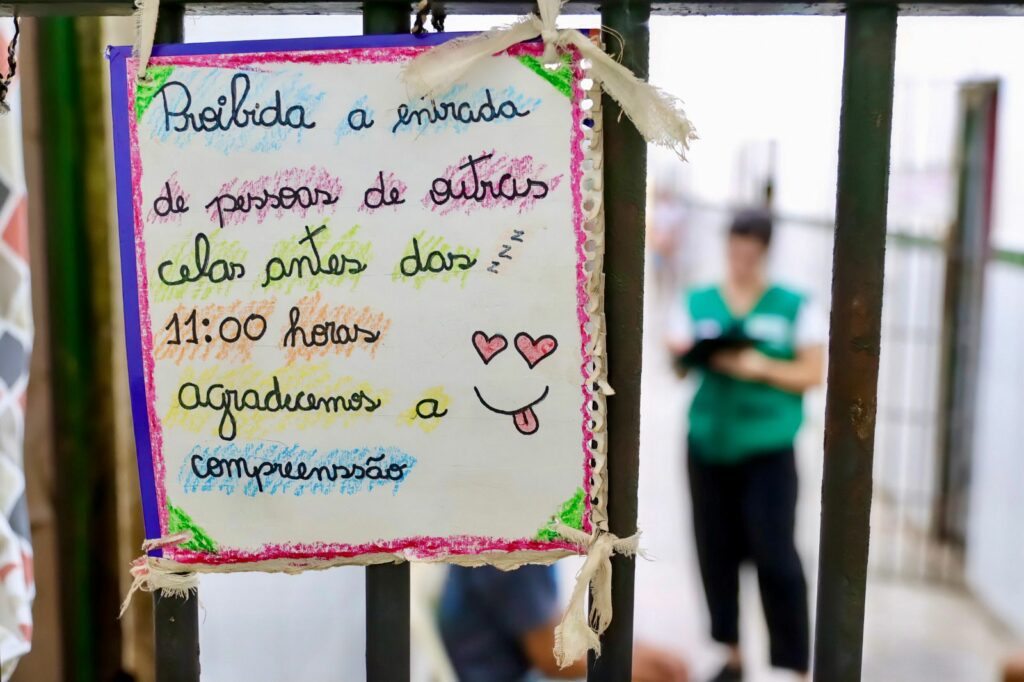 Proibida a entrada
de pessoas de outras
celas antes das zzz
11:00 horas
agradecemos a
compreenssão